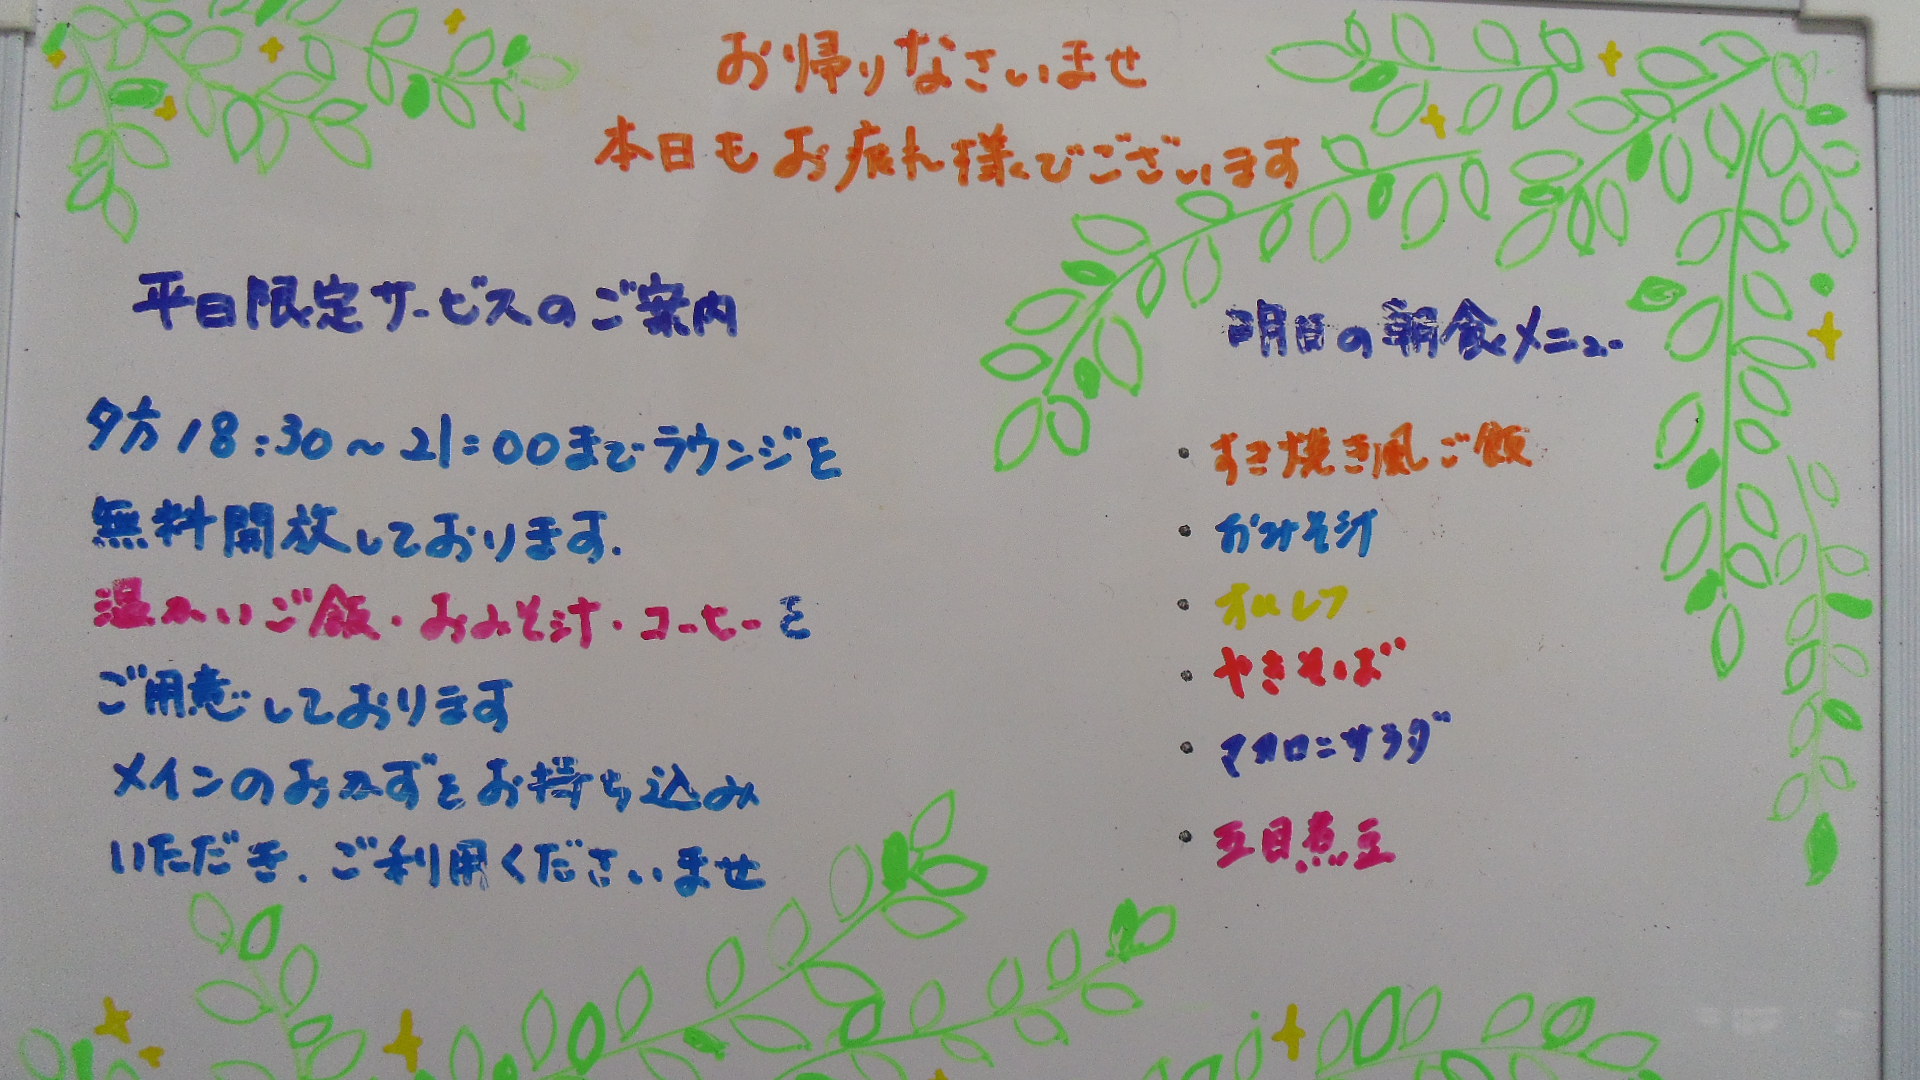 お帰りなさいませ
本日もお疲れ様でございます
平日限定サービスのご案内
夕方18:30～21:00までラウンジを
無料開放しております.
温かいご飯・おみそ汁・コーヒーを
ご用意しております
メインのおかずをお持ち込み
いただき、ご利用くださいませ
明日の朝食メニュー
・すき焼き風ご飯
・おみそ汁
・オムレツ
・やきそば
・マカロニサラダ
・五目煮豆